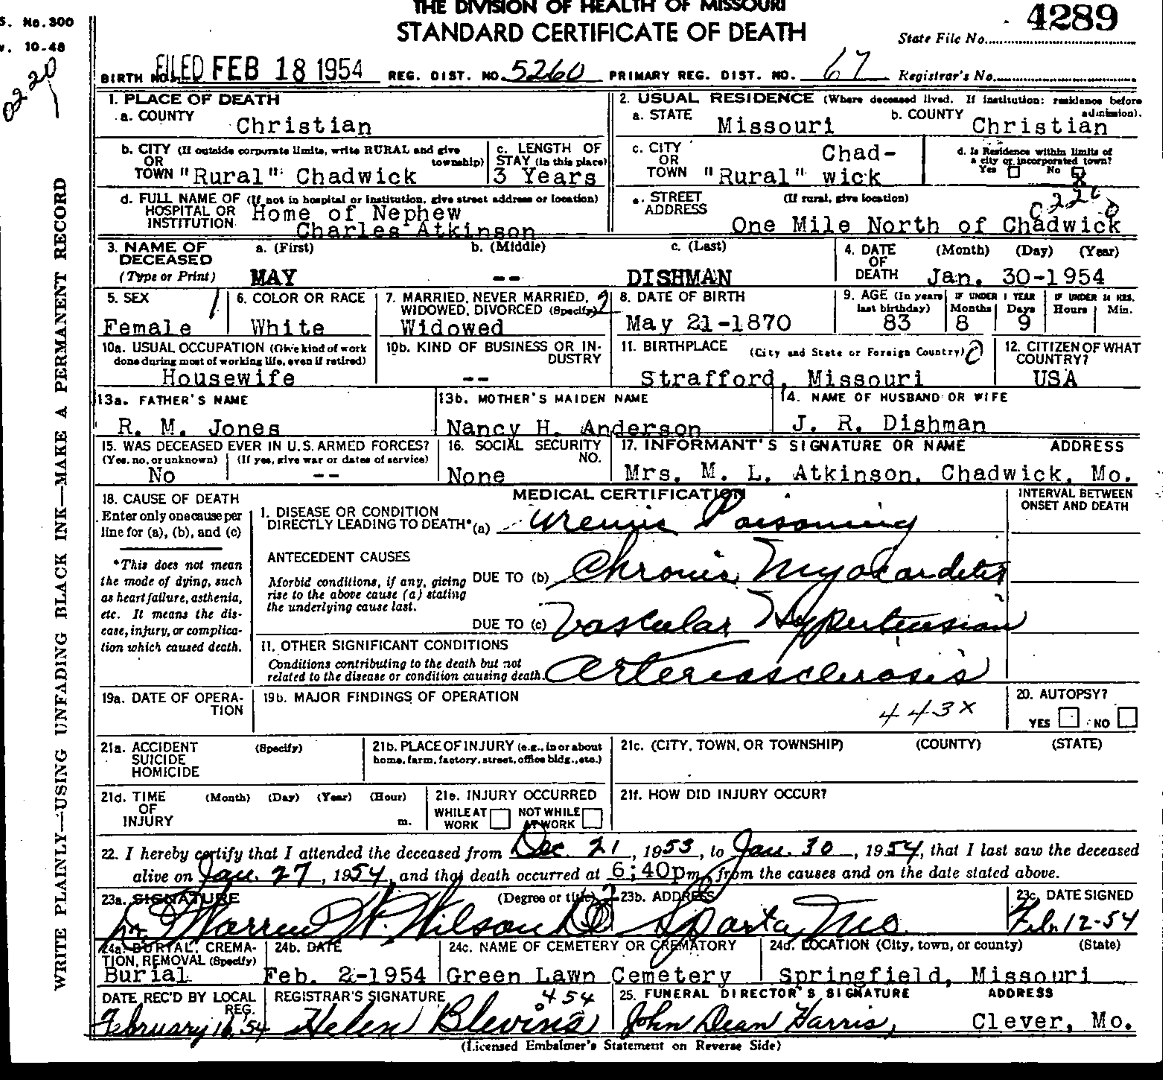 S. No.300
v. 10-48
0220
THE DIVISION OF HEALTH OF MISSOURI
STANDARD CERTIFICATE OF DEATH
State File No. 4289
BIRTH NO. FILED FEB 18 1954 REG. DIST. NO. 5260 PRIMARY REG. DIST. NO. 67 Registrar's No.
WRITE PLAINLY—USING UNFADING BLACK INK—MAKE A PERMANENT RECORD
1. PLACE OF DEATH
a. COUNTY
Christian
2. USUAL RESIDENCE (Where deceased lived. If institution: residence before admission).
a. STATE Missouri b. COUNTY Christian
b. CITY (If outside corporate limits, write RURAL and give township)
OR
TOWN "Rural" Chadwick
c. LENGTH OF STAY (in this place)
3 Years
c. CITY
OR
TOWN "Rural" Chad-
wick
d. Is Residence within limits of a city or incorporated town?
Yes No X
d. FULL NAME OF HOSPITAL OR INSTITUTION (If not in hospital or institution, give street address or location)
Home of Nephew
Charles Atkinson
e. STREET ADDRESS (If rural, give location)
0220
One Mile North of Chadwick
3. NAME OF DECEASED (Type or Print)
a. (First) b. (Middle) c. (Last)
MAY -- DISHMAN
4. DATE OF DEATH (Month) (Day) (Year)
Jan. 30-1954
5. SEX 1
Female
6. COLOR OR RACE
White
7. MARRIED, NEVER MARRIED, WIDOWED, DIVORCED (Specify) 2
Widowed
8. DATE OF BIRTH
May 21-1870
9. AGE (In years last birthday) IF UNDER 1 YEAR Months Days IF UNDER 24 HRS. Hours Min.
83 8 9
10a. USUAL OCCUPATION (Give kind of work done during most of working life, even if retired)
Housewife
10b. KIND OF BUSINESS OR INDUSTRY
--
11. BIRTHPLACE (City and State or Foreign Country) 0
Strafford, Missouri
12. CITIZEN OF WHAT COUNTRY?
USA
13a. FATHER'S NAME
R. M. Jones
13b. MOTHER'S MAIDEN NAME
Nancy H. Anderson
14. NAME OF HUSBAND OR WIFE
J. R. Dishman
15. WAS DECEASED EVER IN U.S. ARMED FORCES?
(Yes, no, or unknown) (If yes, give war or dates of service)
No --
16. SOCIAL SECURITY NO.
None
17. INFORMANT'S SIGNATURE OR NAME ADDRESS
Mrs. M. L. Atkinson, Chadwick, Mo.
18. CAUSE OF DEATH
Enter only one cause per
line for (a), (b), and (c)
*This does not mean
the mode of dying, such
as heart failure, asthenia,
etc. It means the dis-
ease, injury, or complica-
tion which caused death.
MEDICAL CERTIFICATION
INTERVAL BETWEEN ONSET AND DEATH
I. DISEASE OR CONDITION
DIRECTLY LEADING TO DEATH*(a) Uremic Poisoning
ANTECEDENT CAUSES
Morbid conditions, if any, giving
rise to the above cause (a) stating
the underlying cause last.
DUE TO (b) Chronic Myocarditis
DUE TO (c) Vascular Hypertension
II. OTHER SIGNIFICANT CONDITIONS
Conditions contributing to the death but not
related to the disease or condition causing death. Arteriosclerosis
19a. DATE OF OPERA-
TION
19b. MAJOR FINDINGS OF OPERATION
443X
20. AUTOPSY?
YES NO
21a. ACCIDENT (Specify)
SUICIDE
HOMICIDE
21b. PLACE OF INJURY (e.g., in or about
home, farm, factory, street, office bldg., etc.)
21c. (CITY, TOWN, OR TOWNSHIP) (COUNTY) (STATE)
21d. TIME (Month) (Day) (Year) (Hour)
OF
INJURY m.
21e. INJURY OCCURRED
WHILE AT WORK NOT WHILE AT WORK
21f. HOW DID INJURY OCCUR?
22. I hereby certify that I attended the deceased from Dec. 21, 1953, to Jan. 30, 1954, that I last saw the deceased
alive on Jan. 27, 1954, and that death occurred at 6:40pm, from the causes and on the date stated above.
23a. SIGNATURE (Degree or title) 2
Dr. Warren W. Wilson DO
23b. ADDRESS
Sparta, Mo.
23c. DATE SIGNED
Feb. 12-54
24a. BURIAL, CREMA-
TION, REMOVAL (Specify)
Burial
24b. DATE
Feb. 2-1954
24c. NAME OF CEMETERY OR CREMATORY
Green Lawn Cemetery
24d. LOCATION (City, town, or county) (State)
Springfield, Missouri
DATE REC'D BY LOCAL REG.
February 16, 54
REGISTRAR'S SIGNATURE 454
Helen Blevins
25. FUNERAL DIRECTOR'S SIGNATURE ADDRESS
John Dean Harris, Clever, Mo.
(Licensed Embalmer's Statement on Reverse Side)